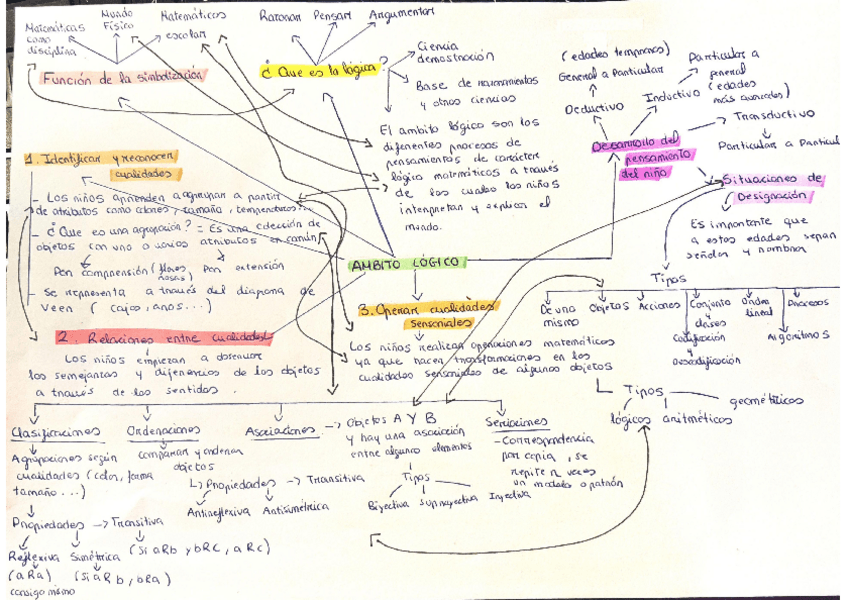 Matemáticas
como
disciplina
Mundo
Físico
Matemáticas
escolar
Función de la simbolización
Razonar Pensar Argumentar
¿Que es la lógica?
Ciencia
demostración
Base de razonamientos
y otras ciencias
El ambito lógico son los
diferentes procesos de
pensamientos de carácter
lógico matemáticos a través
de los cuales los niños
interpretan y explican el
mundo.
(edades tempranas)
General a Particular
Deductivo
Particular a
general
(edades
más avanzadas)
Inductivo
Transductivo
Particular a Particul
Desarrollo del
pensamiento
del niño
Situaciones de
Designación
Es importante que
a estos edades sepan
señalar y nombrar
Tipos
De uno
mismo
Objetos
Acciones
Conjunto
y
clases
Codificación
y
Descodificación
Orden
lineal
Procesos
Algoritmos
1. Identificar y reconocer
cualidades
- Los niños aprenden a agrupar a partir
de atributos como colores, tamaño, temperaturas...
- ¿Que es una agrupación? = Es una colección de
objetos con uno o varios atributos en común
Por comprensión (flores
rosas)
Por extensión
- Se representa a través del diagrama de
Veen ( cajas, aros...)
AMBITO LÓGICO
2. Relaciones entre cualidades
Los niños empiezan a observar
las semejanzas y diferencias de los objetos
a través de los sentidos.
3. Operar cualidades
sensoriales
Los niños realizan operaciones matemáticas
ya que hacen transformaciones en las
cualidades sensoriales de algunos objetos
Tipos
lógicos aritméticos geométricos
Clasificaciones
Agrupaciones según
cualidades (color, forma
tamaño...)
Propiedades → Transitiva
(Si aRb y bRc, aRc)
Reflexiva
(aRa)
consigo mismo
Simétrica
(Si aRb, bRa)
Ordenaciones
comparar y ordenar
objetos
Propiedades → Transitiva
Antireflexiva Antisimétrica
Asociaciones → Objetos A Y B
y hay una asociación
entre algunos elementos
Tipos
Biyectiva Suprayectiva Inyectiva
Seriaciones
- Correspondencia
por copia, se
repite n veces
un modelo o patrón